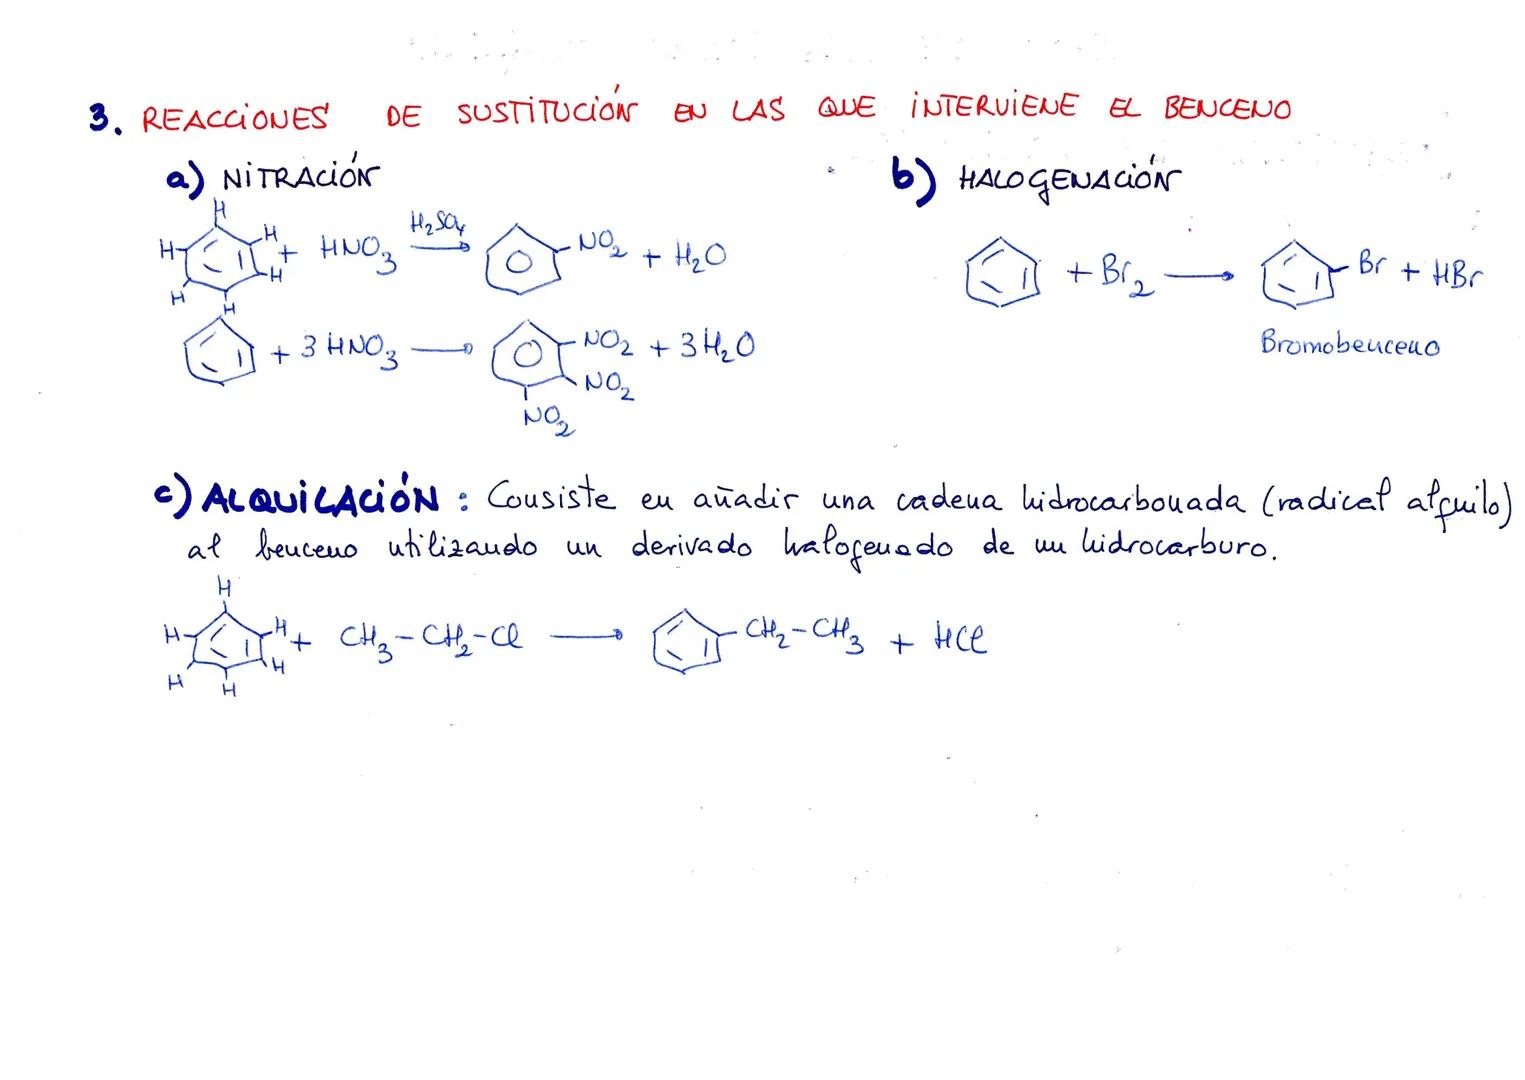 3. REACCIONES DE SUSTITUCIÓN EN LAS QUE INTERVIENE EL BENCENO
a) NITRACIÓN
H
H H + HNO3 H2SO4 NO2 + H2O
H
H H
+ 3 HNO3 NO2 + 3H2O
NO2
NO2
b) HALOGENACIÓN
+ Br2 Br + HBr
Bromobenceno
c) ALQUILACIÓN : Consiste en añadir una cadena hidrocarbonada (radical alquilo)
al benceno utilizando un derivado halogenado de un hidrocarburo.
H
H H + CH3-CH2-Cl CH2-CH3 + HCl
H
H H